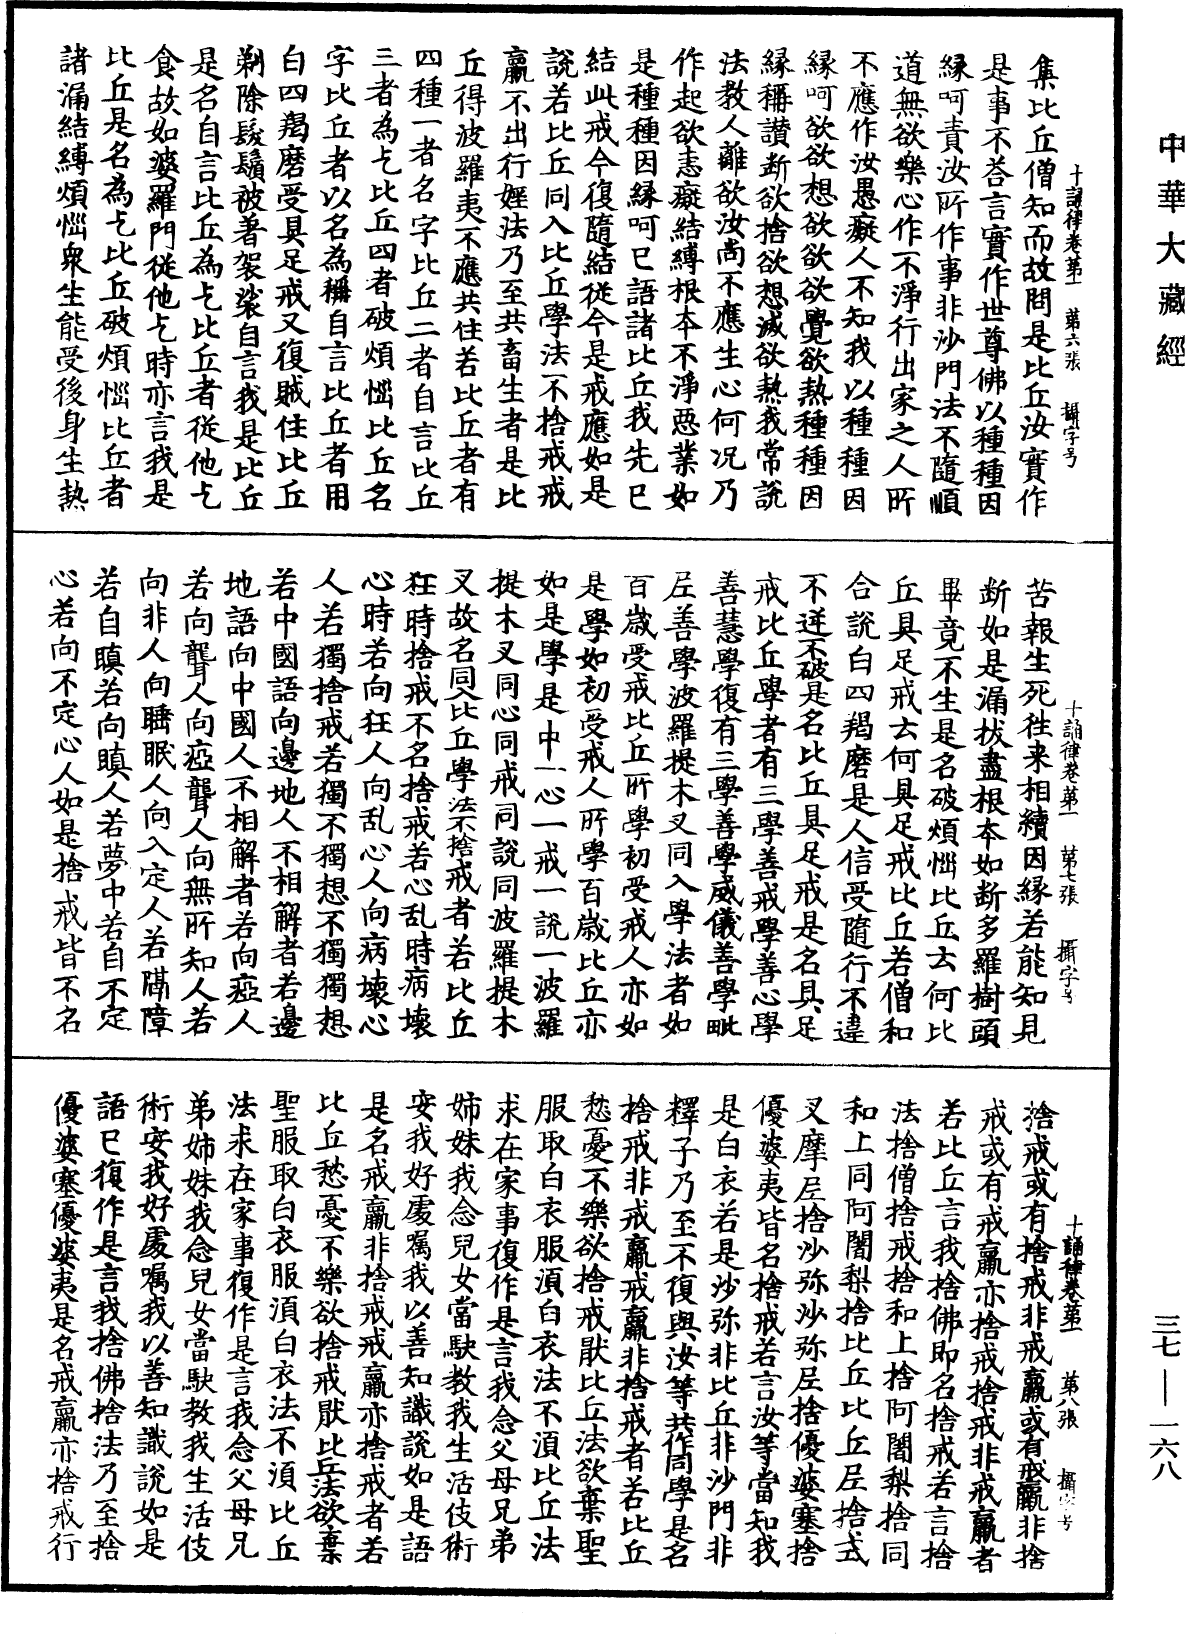 中華大藏經
十誦律卷第一　第六張　攝字号
集比丘僧知而故問是比丘汝實作
是事不荅言實作世尊佛以種種因
縁呵責汝所作事非沙門法不隨順
道無欲樂心作不淨行出家之人所
不應作汝愚癡人不知我以種種因
縁呵欲欲想欲欲欲覺欲熱種種因
縁稱讚断欲捨欲想滅欲熱我常説
法教人離欲汝尚不應生心何况乃
作起欲恚癡結縛根夲不淨惡業如
是種種因縁呵已語諸比丘我先已
結此戒今復隨結從今是戒應如是
說若比丘同入比丘學法不捨戒戒
羸不出行婬法乃至共畜生者是比
丘得波羅夷不應共住若比丘者有
四種一者名字比丘二者自言比丘
三者為乞比丘四者破煩惱比丘名
字比丘者以名為稱自言比丘者用
白四羯磨受具足戒又復賊住比丘
剃除鬚髮被著袈裟自言我是比丘
是名自言比丘為乞比丘者從他乞
食故如婆羅門從他乞時亦言我是
比丘是名為乞比丘破煩惱比丘者
諸漏結縛煩惱衆生能受後身生熱
十誦律卷第一　第七張　攝字号
苦報生死往来相續因縁若能知見
断如是漏拔盡根夲如断多羅樹頭
畢竟不生是名破煩惱比丘云何比
丘具足戒云何具足戒比丘若僧和
合說白四羯磨是人信受隨行不違
不逆不破是名比丘具足戒是名具足
戒比丘學者有三學善戒學善心學
善慧學復有三學善學威儀善學毗
尼善學波羅提木叉同入學法者如
百歲受戒比丘所學初受戒人亦如
是學如初受戒人所學百歲比丘亦
如是學是中一心一戒一說一波羅
提木叉同心同戒同説同波羅提木
叉故名同入比丘學法不捨戒者若比丘
狂時捨戒不名捨戒若心乱時病壊
心時若向狂人向乱心人向病壊心
人若獨捨戒若獨不獨想不獨獨想
若中國語向邊地人不相解者若邊
地語向中國人不相解者若向瘂人
若向聾人向瘂聾人向無所知人若
向非人向睡眠人向入定人若隔障
若自瞋若向瞋人若夢中若自不定
心若向不定心人如是捨戒皆不名
十誦律卷第一　第八張　攝字号
捨戒或有捨戒非戒羸或有戒羸非捨
戒或有戒羸亦捨戒捨戒非戒羸者
若比丘言我捨佛即名捨戒若言捨
法捨僧捨戒捨和上捨阿闍梨捨同
和上同阿闍梨捨比丘比丘尼捨式
叉摩尼捨沙弥沙弥尼捨優婆塞捨
優婆夷皆名捨戒若言汝等當知我
是白衣若是沙弥非比丘非沙門非
釋子乃至不復與汝等共作同學是名
捨戒非戒羸戒羸非捨戒者若比丘
愁憂不樂欲捨戒猒比丘法欲棄聖
服取白衣服湏白衣法不湏比丘法
求在家事復作是言我念父母兄弟
姉妹我念兒女當駃教我生活伎術
安我好處嘱我以善知識說如是語
是名戒羸非捨戒戒羸亦捨戒者若
比丘愁憂不樂欲捨戒猒比丘法欲棄
聖服取白衣服湏白衣法不湏比丘
法求在家事復作是言我念父母兄
弟姉妹我念兒女當駃教我生活伎
術安我好處嘱我以善知識説如是
語已復作是言我捨佛捨法乃至捨
優婆塞優婆夷是名戒羸亦捨戒行
三七—一六八